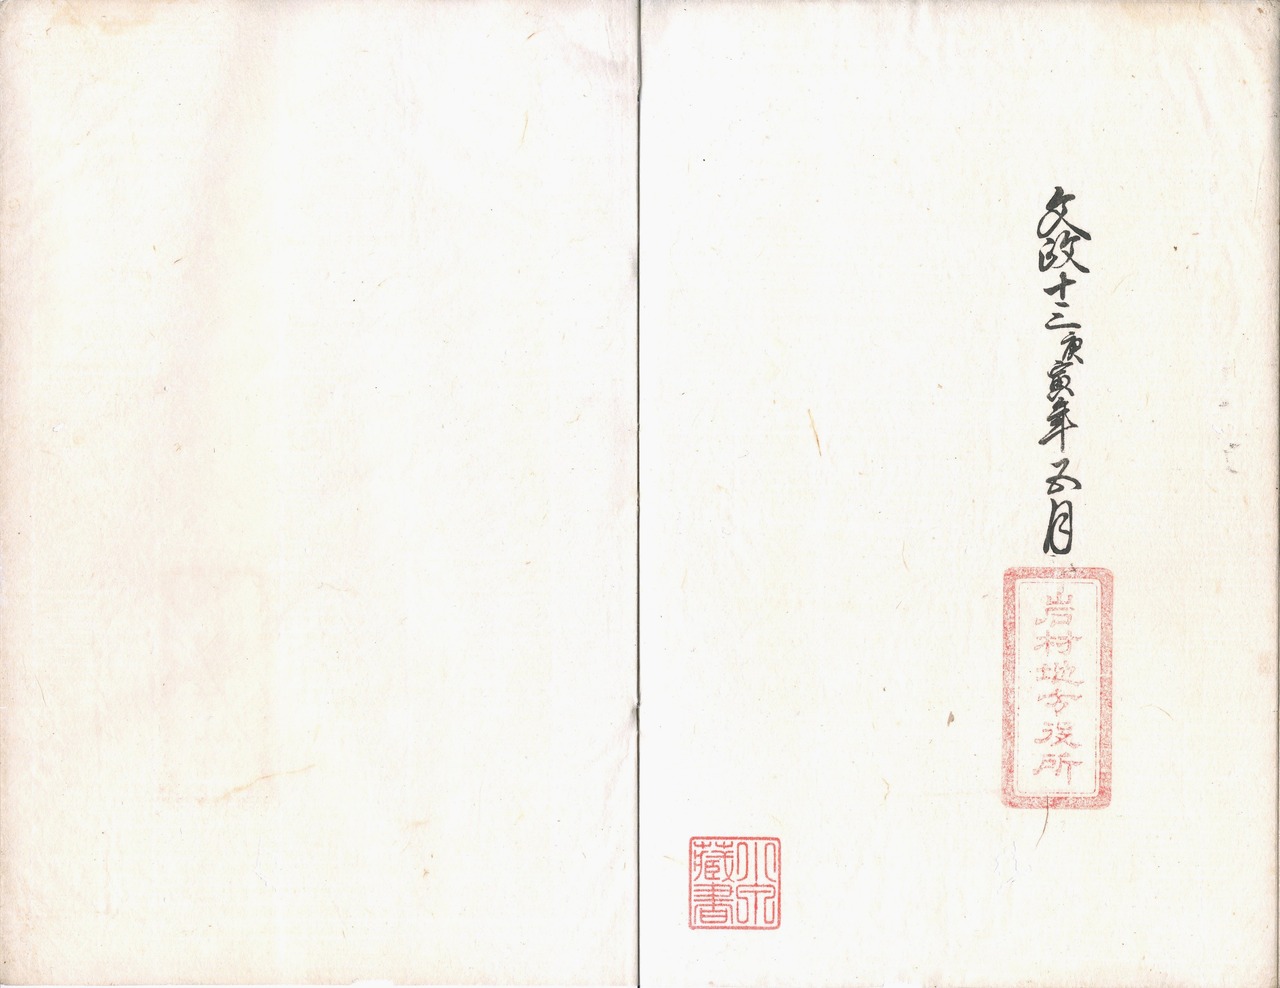 文政十三庚寅年五月
岩村地方役所
小泉
藏書